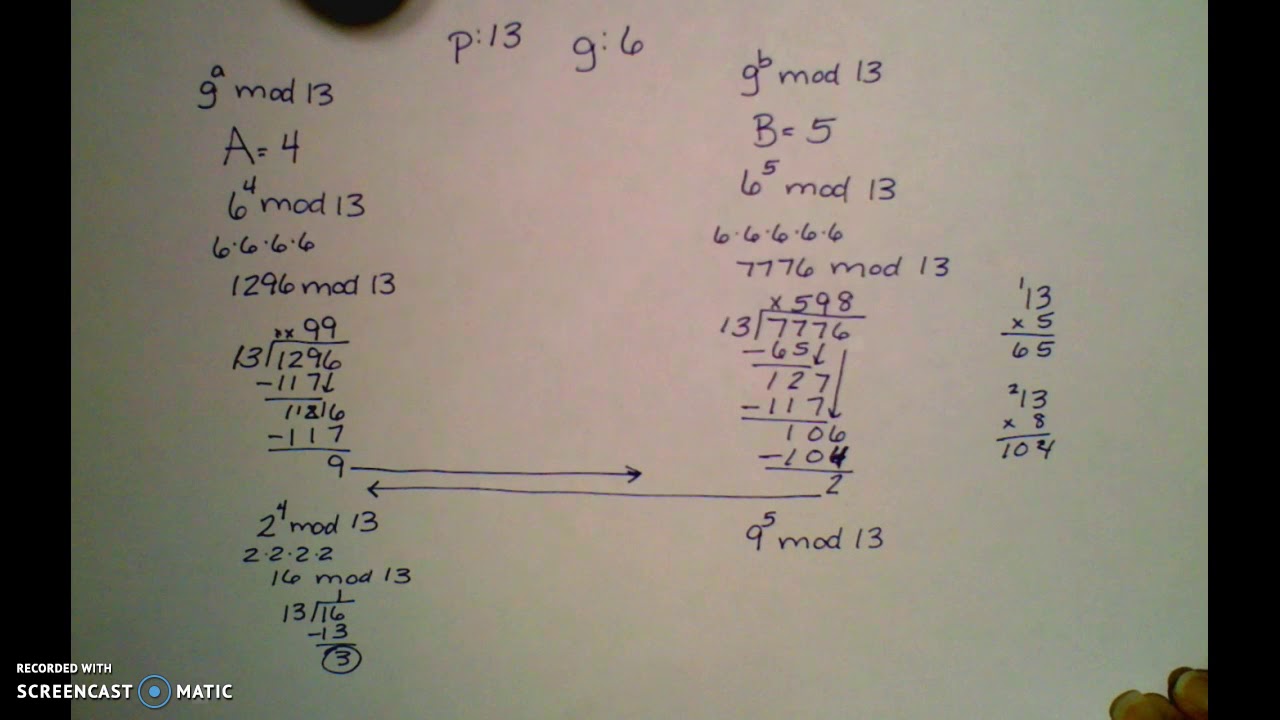 p:13 g:6
gᵃ mod 13
A= 4
6⁴ mod 13
6·6·6·6
1296 mod 13
xx 99
13/1296
-117↓
11816
-117
9
2⁴ mod 13
2·2·2·2
16 mod 13
1
13/16
-13
3
gᵇ mod 13
B= 5
6⁵ mod 13
6·6·6·6·6
7776 mod 13
x 598
13/7776
-65↓
127
-117↓
106
-104
2
9⁵ mod 13
¹13
x 5
65
²13
x 8
104
RECORDED WITH
SCREENCAST MATIC